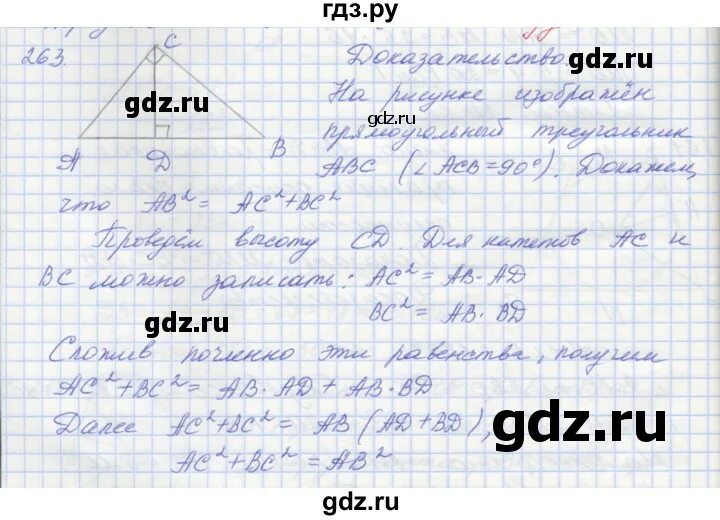 гдз.ру
263.
C
A
D
B
gdz.ru
Доказательство.
gdz.ru
На рисунке изображён
прямоугольный треугольник
ABC (∠ACB=90°). Докажем,
что AB² = AC²+BC²
Проведём высоту CD. Для катетов AC и
BC можно записать: AC² = AB·AD
BC² = AB·BD
gdz.ru
Сложив почленно эти равенства, получим
AC²+BC² = AB·AD + AB·BD
Далее AC²+BC² = AB(AD+BD),
AC²+BC² = AB²
gdz.ru
gdz.ru
gdz.ru